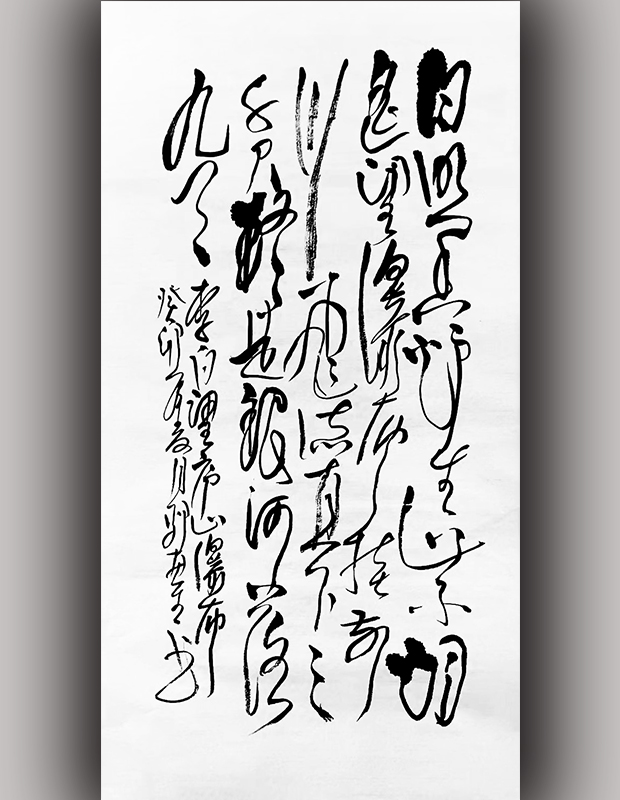 日照香炉生紫烟
遥望瀑布挂前
川飞流直下三
千尺疑是銀河落
九天
李白望庐山瀑布
癸卯年月书